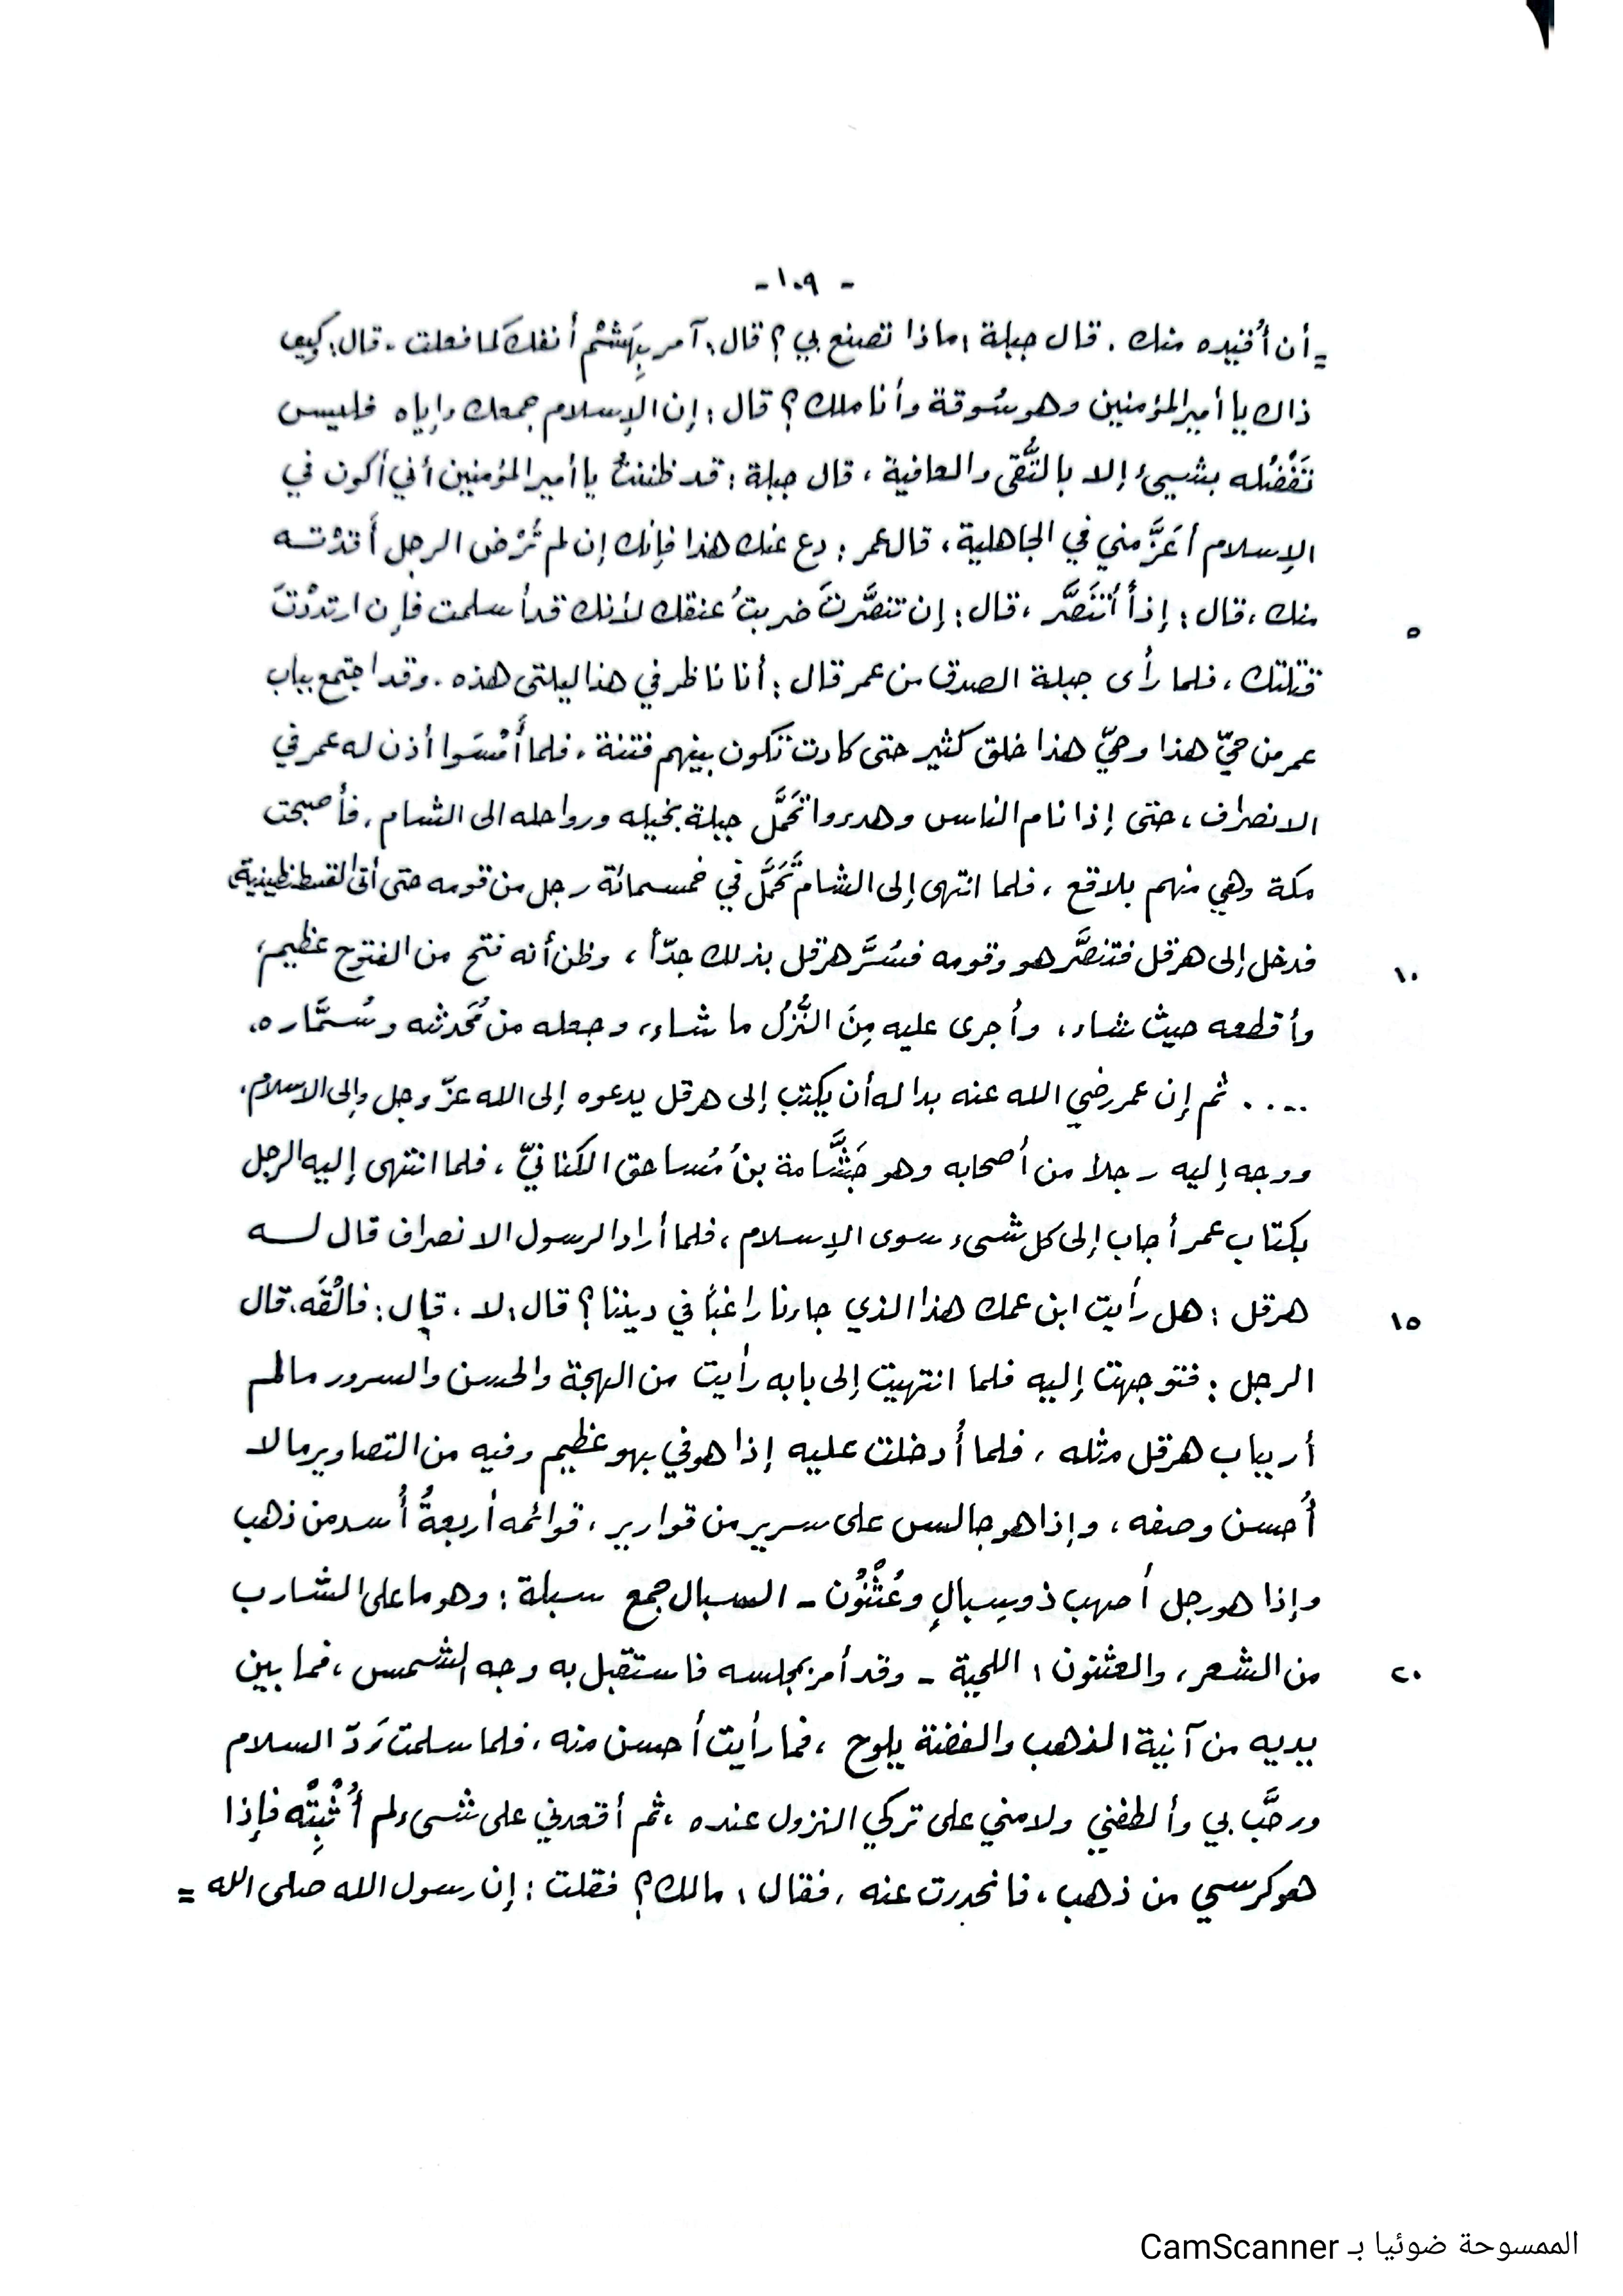 - ١٠٩ -
= أن أُقيده منك . قال جبلة : ماذا تصنع بي ؟ قال : آمر بِهَشْم أنفك كما فعلت . قال : كيف
ذاك يا أمير المؤمنين وهو سُوقة وأنا ملك ؟ قال : إن الإسلام جمعك وإياه فليس
تَفْضُله بشيئ إلا بالتُّقى والعافية ، قال جبلة : قد ظننتُ يا أمير المؤمنين أني أكون في
الإسلام أعَزَّ مني في الجاهلية ، قال عمر : دع عنك هذا فإنك إن لم تُرْض الرجل أَقدْتـه
٥ منك ، قال : إذاً أتنَصَّر ، قال : إن تنصَّرتَ ضربتُ عنقك لأنك قد أسلمت فإن ارتددْتَ
قتلتك ، فلما رأى جبلة الصدق من عمر قال : أنا ناظر في هذا ليلتى هذه . وقد اجتمع بباب
عمر من حيّ هذا وحيّ هذا خلق كثير حتى كادت تكون بينهم فتنة ، فلما أَمْسَوا أذن له عمر في
الانصراف ، حتى إذا نام الناس وهدءوا تحَمَّل جبلة بخيله ورواحله الى الشام ، فأصبحت
مكة وهي منهم بلاقع ، فلما انتهى إلى الشام تَحَمَّل في خمسمائة رجل من قومه حتى أتى القسطنطينية ،
١٠ فدخل إلى هرقل فتنصَّر هو وقومه فسُرَّ هرقل بذلك جدّاً ، وظن أنه فتح من الفتوح عظيم ،
وأقطعه حيث شاء ، وأجرى عليه مِنَ النُّزل ما شاء ، وجعله من مُحَدثيه وسُمَّاره .
.... ثم إن عمر رضي الله عنه بدا له أن يكتب إلى هرقل يدعوه إلى الله عزّ وجل وإلى الاسلام .
ووجه إليه رجلا من أصحابه وهو جَثَّامة بنُ مُساحق الكنانيّ ، فلما انتهى إليه الرجل
بكتاب عمر أجاب إلى كل شىء سوى الإسلام ، فلما أراد الرسول الانصراف قال لـه
١٥ هرقل : هل رأيت ابن عمك هذا الذي جاءنا راغباً في ديننا ؟ قال : لا ، قال : فالْقَه ، قال
الرجل : فتوجهت إليه فلما انتهيت إلى بابه رأيت من البهجة والحسن والسرور مالم
أر بباب هرقل مثله ، فلما أُدخلت عليه إذا هو في بهو عظيم وفيه من التصاوير مالا
أُحسن وصفه ، وإذا هو جالس على سرير من قوارير ، قوائمه أربعةُ أُسد من ذهب
وإذا هو رجل أصهب ذو سِبالٍ وعُثْنُون - السبال جمع سبلة : وهو ما على الشارب
٢٠ من الشعر ، والعثنون : اللحية - وقد أمر بمجلسه فاستقبل به وجه الشمس ، فما بين
يديه من آنية الذهب والفضة يلوح ، فما رأيت أحسن منه ، فلما سلمت رَدّ السلام
ورحَّب بي وألطفني ولامني على تركي النزول عنده ، ثم أقعدني على شىء لم أُثْبِتْه فإذا
هو كرسي من ذهب ، فانحدرت عنه ، فقال : مالك ؟ فقلت : إن رسول الله صلى الله =
الممسوحة ضوئيا بـ CamScanner